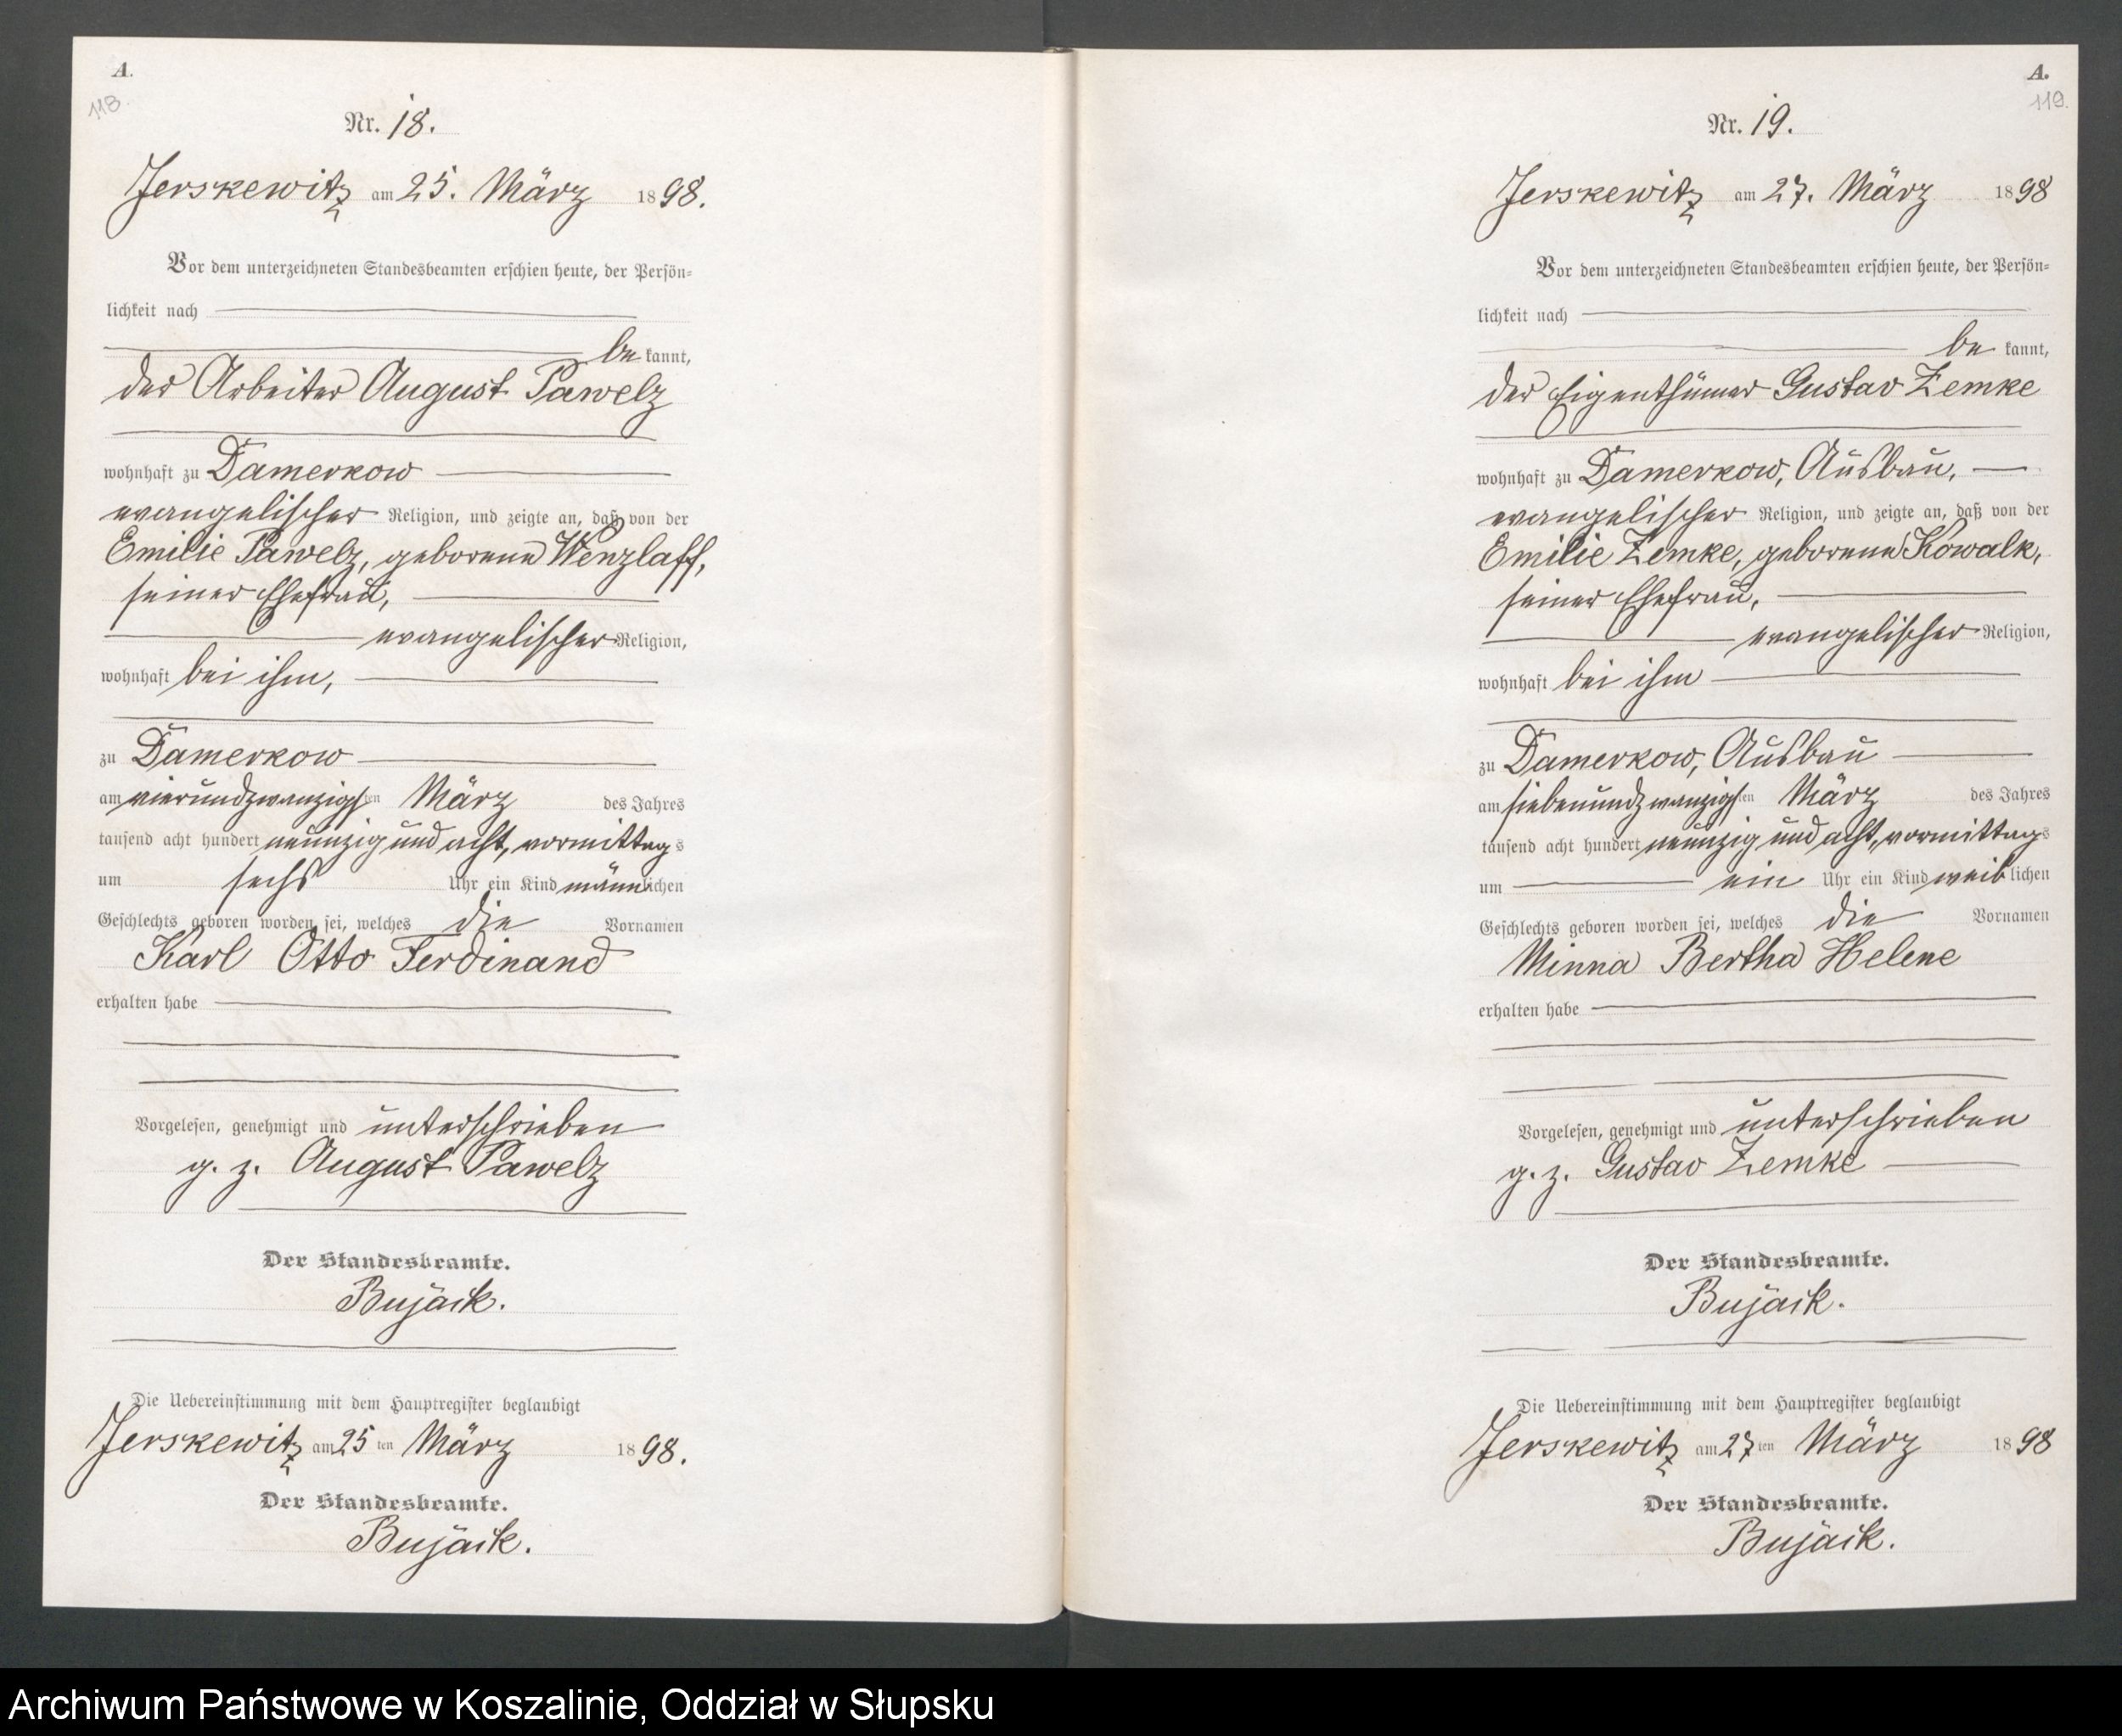 A.
118.
Nr. 18.
Jerskewitz am 25. März 1898.
Vor dem unterzeichneten Standesbeamten erschien heute, der Persön-
lichkeit nach
be kannt,
der Arbeiter August Pawelz
wohnhaft zu Damerkow
evangelischer Religion, und zeigte an, daß von der
Emilie Pawelz, geborene Wenzlaff,
seiner Ehefrau,
evangelischer Religion,
wohnhaft bei ihm,
zu Damerkow
am vierundzwanzigsten März des Jahres
tausend acht hundert neunzig und acht, vormittags
um sechs Uhr ein Kind männlichen
Geschlechts geboren worden sei, welches die Vornamen
Karl Otto Ferdinand
erhalten habe
Vorgelesen, genehmigt und unterschrieben
g. z. August Pawelz
Der Standesbeamte.
Bujack.
Die Uebereinstimmung mit dem Hauptregister beglaubigt
Jerskewitz am 25ten März 1898.
Der Standesbeamte.
Bujack.
A.
119.
Nr. 19.
Jerskewitz am 27. März 1898
Vor dem unterzeichneten Standesbeamten erschien heute, der Persön-
lichkeit nach
be kannt,
der Eigenthümer Gustav Zemke
wohnhaft zu Damerkow, Ausbau,
evangelischer Religion, und zeigte an, daß von der
Emilie Zemke, geborene Kowalk,
seiner Ehefrau,
evangelischer Religion,
wohnhaft bei ihm
zu Damerkow, Ausbau
am siebenundzwanzigsten März des Jahres
tausend acht hundert neunzig und acht, vormittags
um ein Uhr ein Kind weiblichen
Geschlechts geboren worden sei, welches die Vornamen
Minna Bertha Helene
erhalten habe
Vorgelesen, genehmigt und unterschrieben
g. z. Gustav Zemke
Der Standesbeamte.
Bujack.
Die Uebereinstimmung mit dem Hauptregister beglaubigt
Jerskewitz am 27ten März 1898
Der Standesbeamte.
Bujack.
Archiwum Państwowe w Koszalinie, Oddział w Słupsku